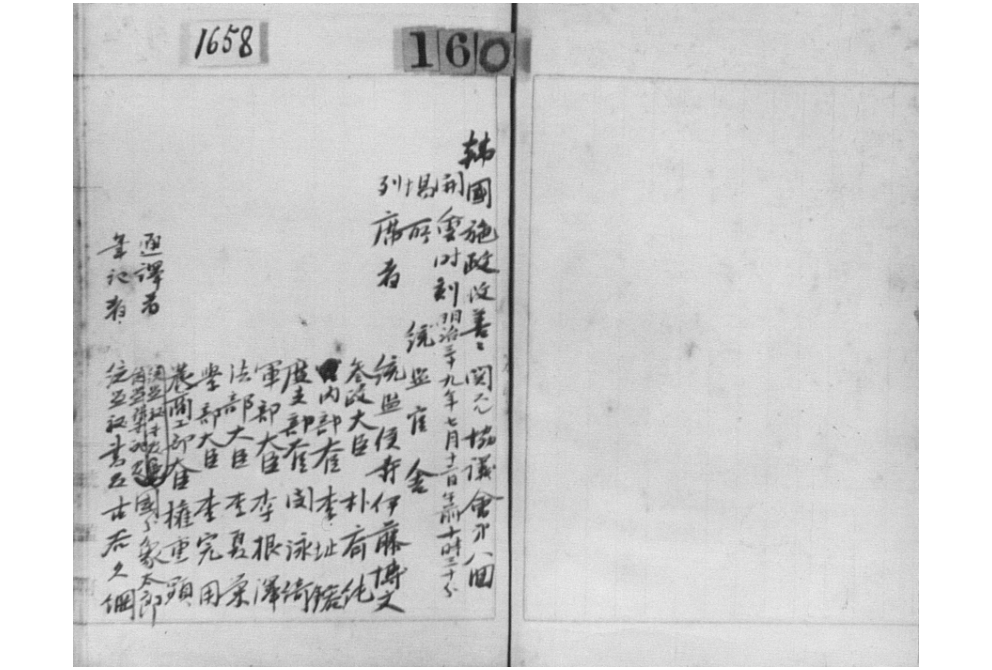 1658
160
韓國施政改善ニ関スル協議會第八回
開會時刻 明治三十九年七月十二日午前十時三十分
場所 統監官舎
列席者
統監侯爵伊藤博文
参政大臣 朴斉純
内部大臣 李址鎔
度支部大臣 閔泳綺
軍部大臣 李根澤
法部大臣 李夏栄
學部大臣 李完用
農商工部大臣 權重顕
通譯者 國分象太郎
筆記者 統監秘書官古谷久綱